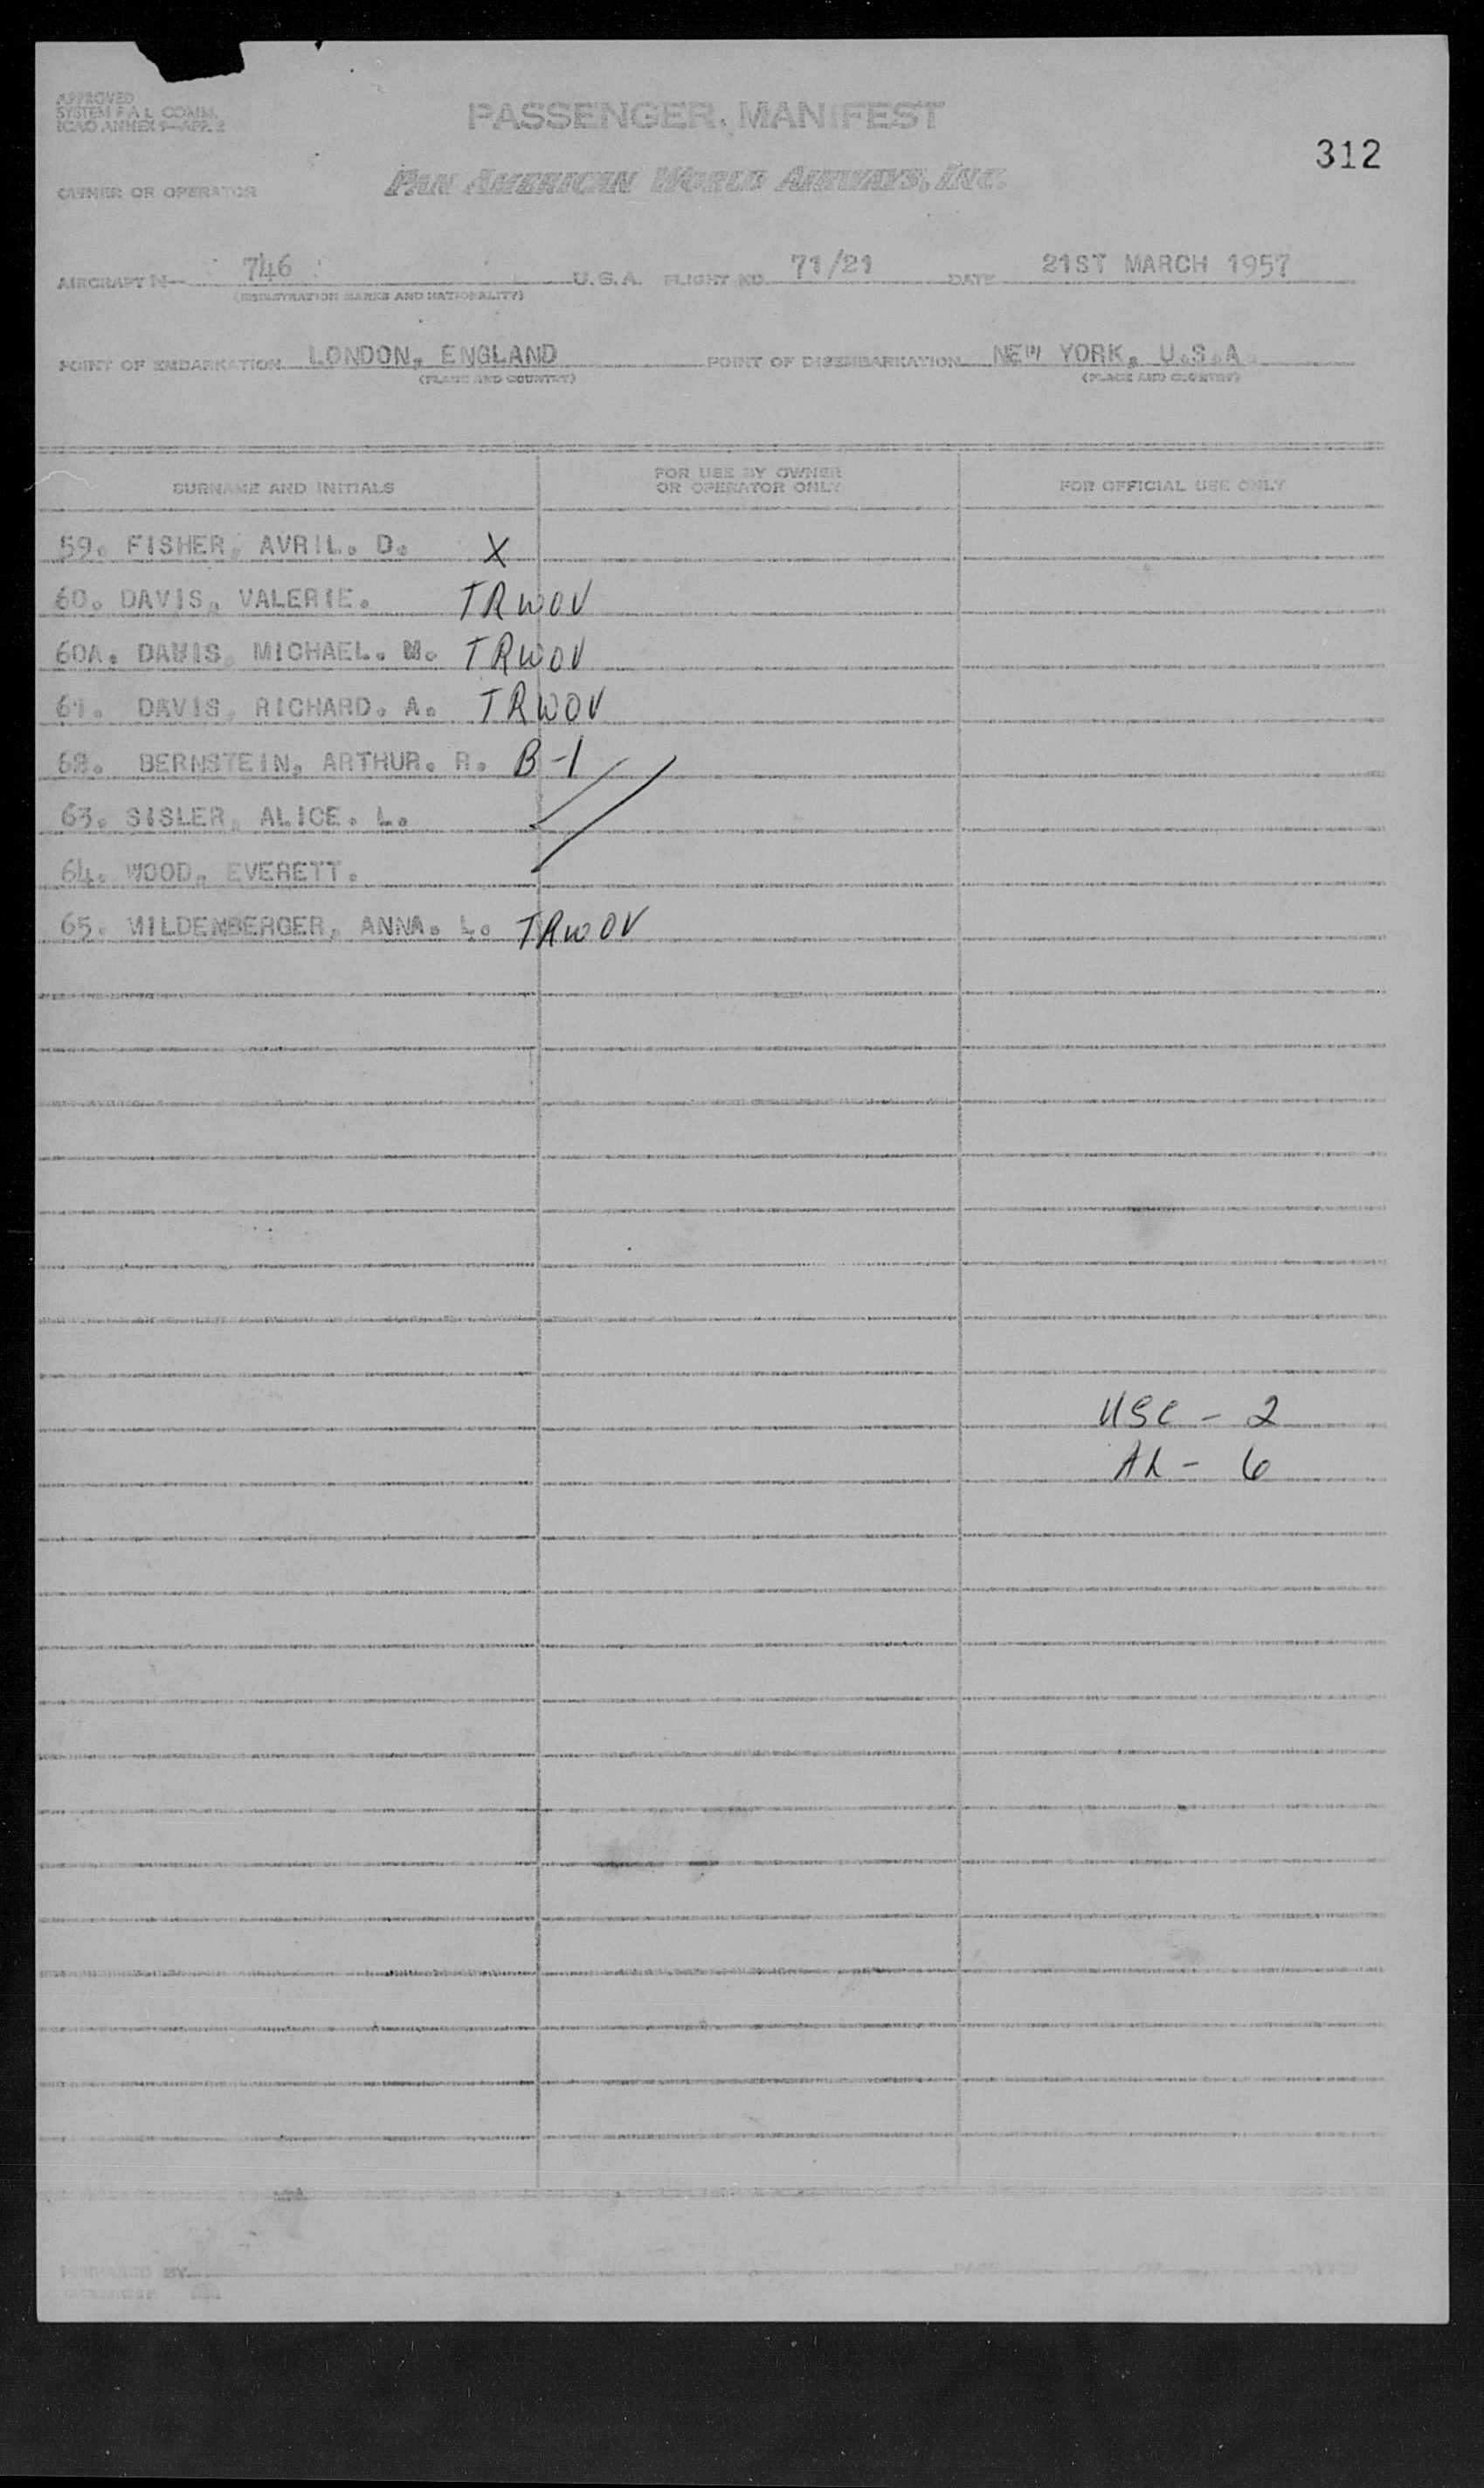 APPROVED
SYSTEM F A L COMM.
ICAO ANNEX 9—APP. 2
PASSENGER MANIFEST
312
OWNER OR OPERATOR PAN AMERICAN WORLD AIRWAYS, INC.
AIRCRAFT N— 746 U.S.A. FLIGHT NO. 71/21 DATE 21ST MARCH 1957
(REGISTRATION MARKS AND NATIONALITY)
POINT OF EMBARKATION LONDON, ENGLAND POINT OF DISEMBARKATION NEW YORK, U.S.A.
(PLACE AND COUNTRY) (PLACE AND COUNTRY)
SURNAME AND INITIALS FOR USE BY OWNER OR OPERATOR ONLY FOR OFFICIAL USE ONLY
59. FISHER, AVRIL. D. X
60. DAVIS, VALERIE. TRWOV
60A. DAVIS, MICHAEL. M. TRWOV
61. DAVIS, RICHARD. A. TRWOV
62. BERNSTEIN, ARTHUR. R. B-1
63. SISLER, ALICE. L.
64. WOOD, EVERETT.
65. WILDENBERGER, ANNA. L. TRWOV
USC - 2
AL - 6
PREPARED BY